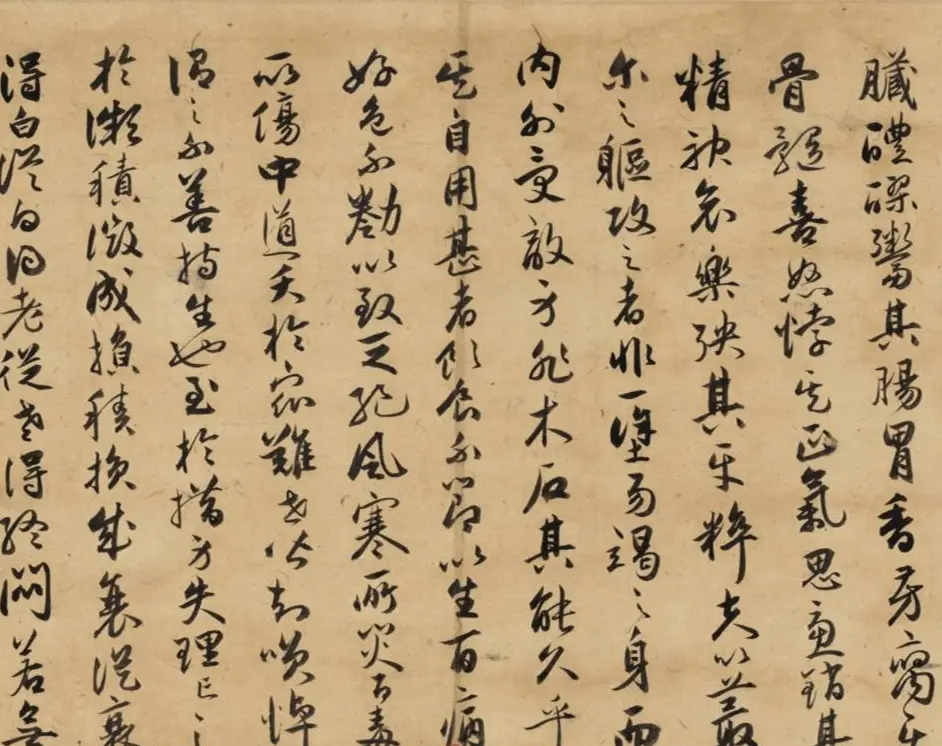 臟醴醪鬻其腸胃香芳腐其
骨髓喜怒悖其正氣思慮銷其
精神哀樂殃其平粹夫以蕞
尓之軀攻之者非一塗易竭之身而
内外受敵身非木石其能久乎
其自用甚者飲食不節以生百病
好色不勌以致乏絕風寒所災百毒
所傷中道夭於眾難世皆知笑悼
謂之不善持生也至於措身失理亡之
於微積微成損積損成衰從衰
得白從白得老從老得終悶若無